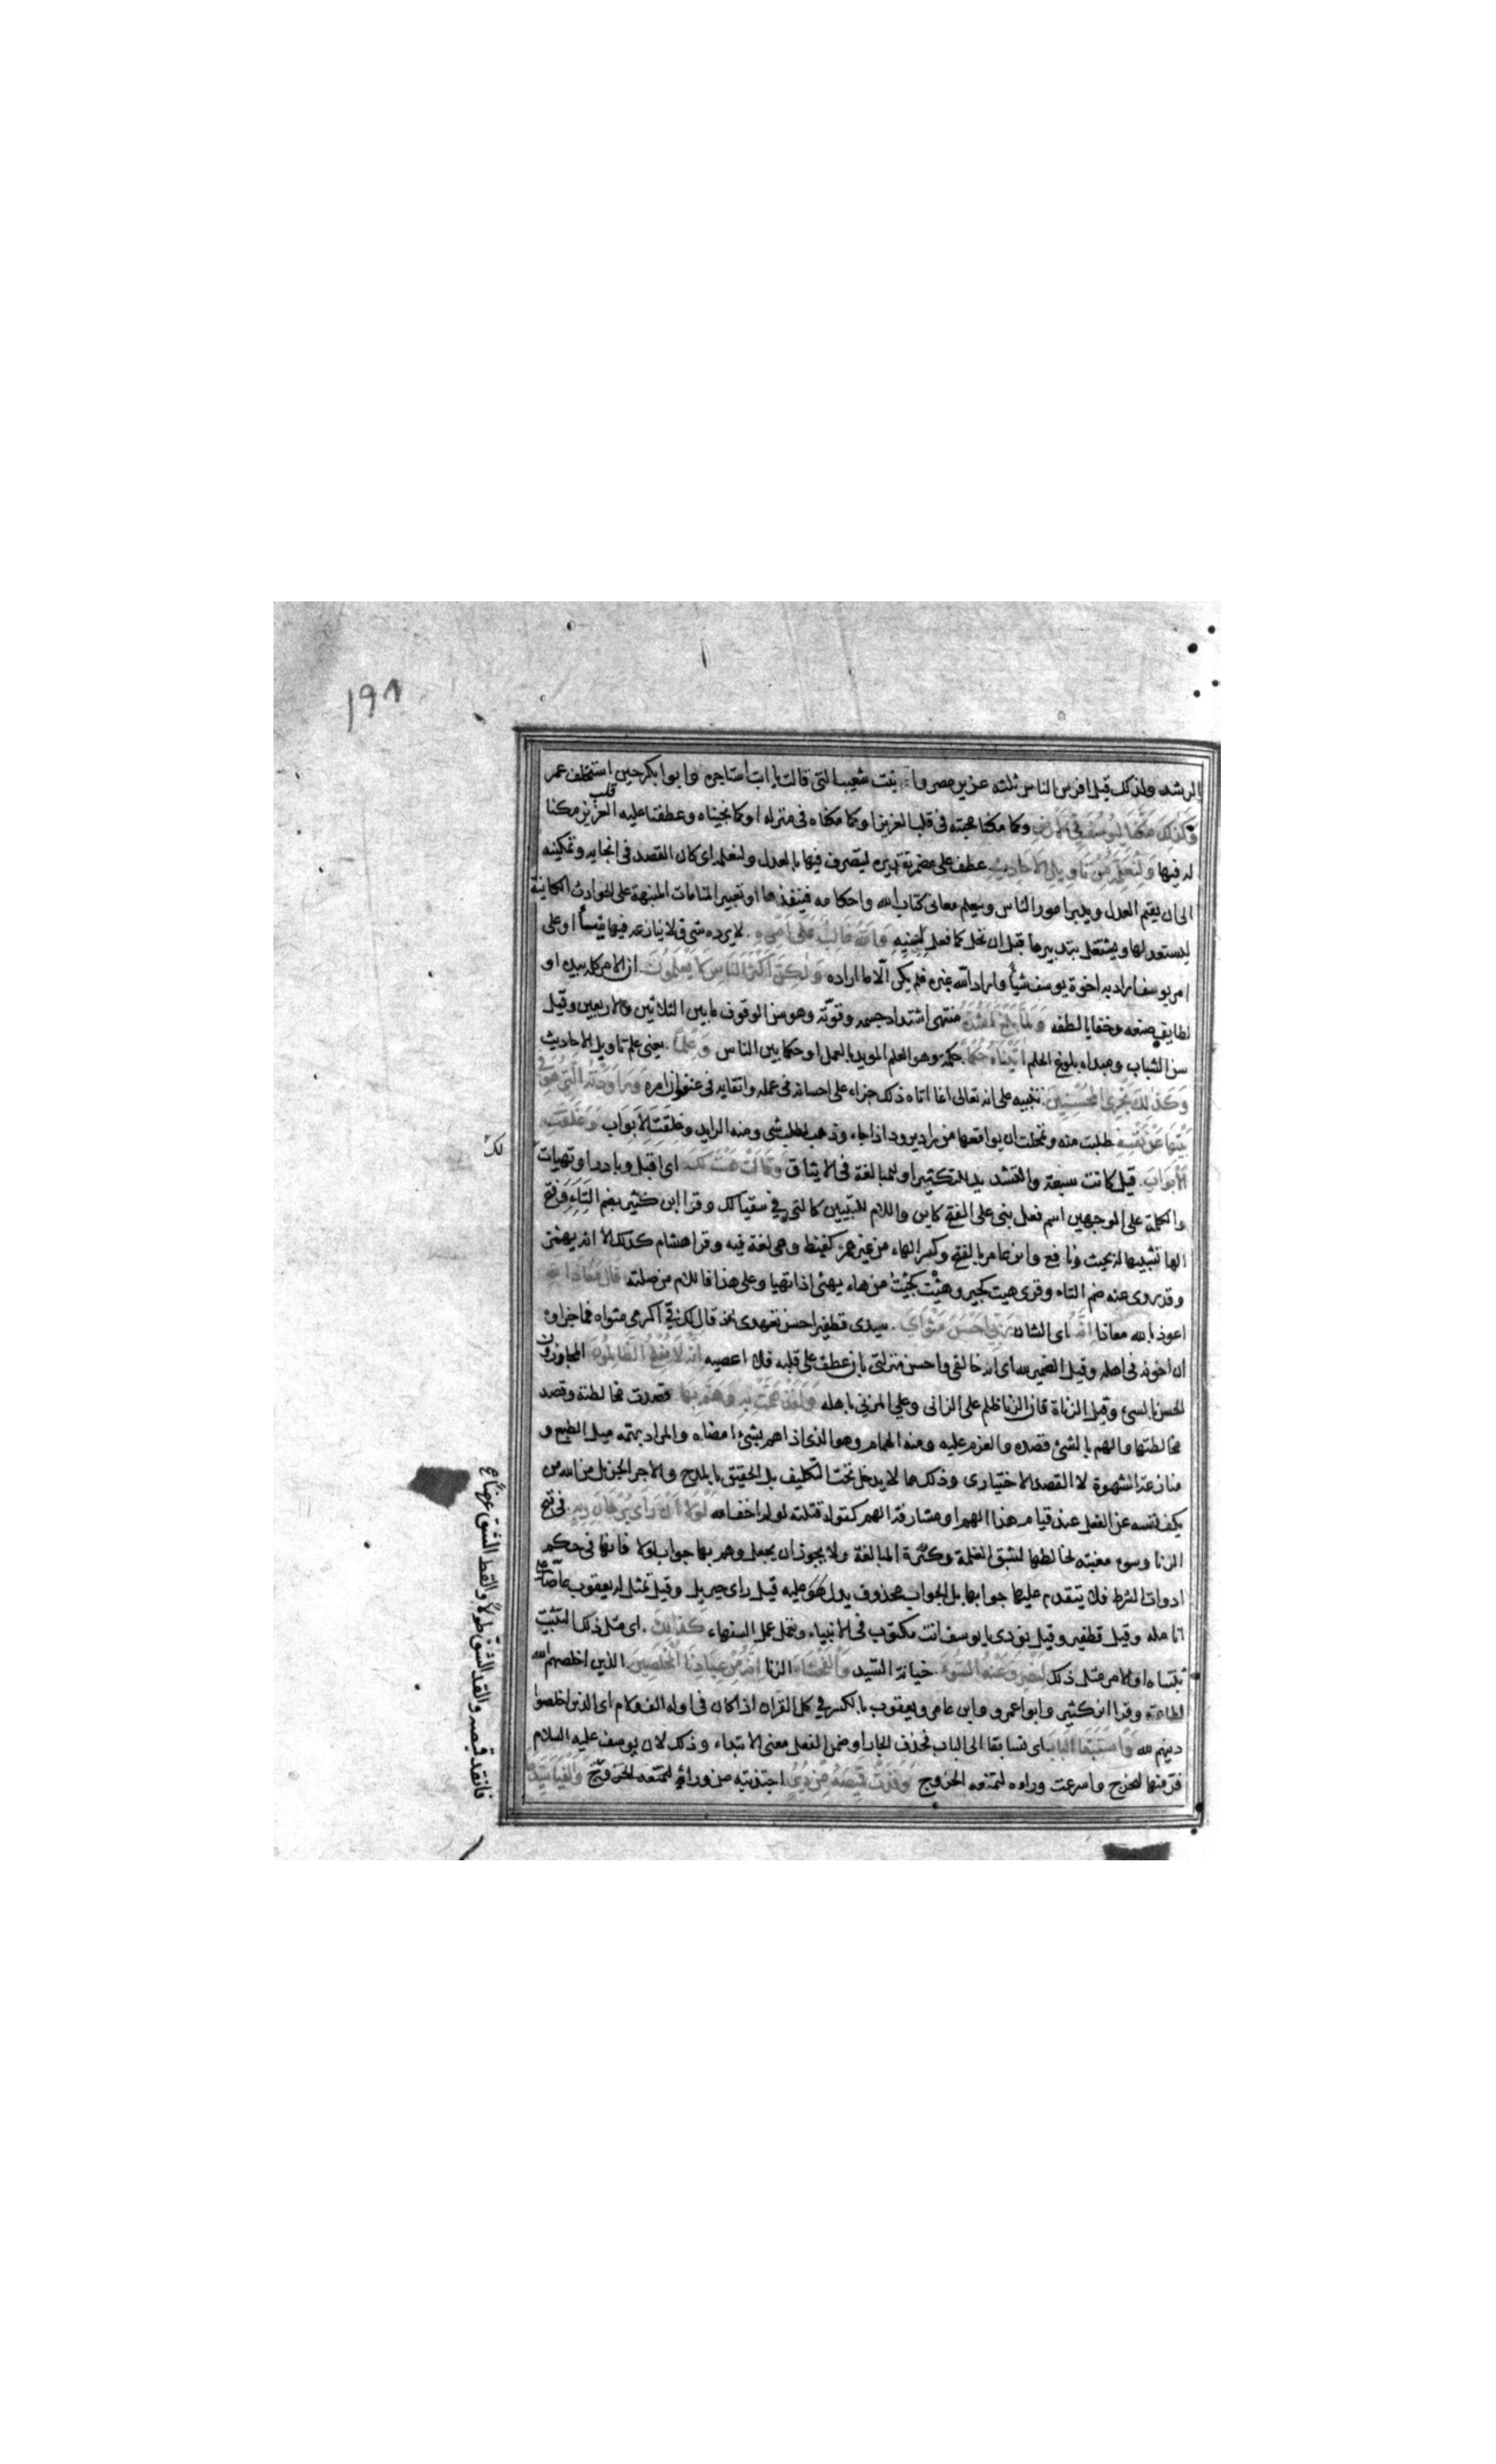 ١٩٨
الرشد ولذلك قيل افرس الناس ثلثة عزيز مصر و ابنت شعيب التى قالت يا ابت استاجره وابوا بكر حين استخلف عمر
وَكَذلِكَ مَكَّنَّا لِيُوسُفَ فِي الاَرْضِ وكما مكنا محبته فى قلب العزيز او كما مكناه فى منزله او كما نجيناه وعطفنا عليه قلب العزيز مكنا
له فيها وَلِنُعَلِّمَهُ مِنْ تَاْوِيلِ الاَحَادِيثِ عطف على مضمر تقديره ليتصرف فيها بالعدل ولنعلمه اى كان القصد فى انجايه وتمكينه
الى ان يقيم العدل ويدبر امور الناس ويعلم معانى كتاب الله واحكامه فينفذها او تعبير المنامات المنبهة على الحوادث الكاينة
ليستعد لها ويشتغل بتدبيرها قبل ان تحل كما فعل لسنيه وَاللهُ غَالِبٌ عَلَى اَمْرِهِ لا يرده شى ولا ينازعه فيما يشأ او على
امر يوسف اراد به اخوة يوسف شيأ واراد الله غيره فلم يكن الّا ما اراده وَلكِنَّ اَكْثَرَ النَّاسِ لا يَعْلَمُونَ ان الامر كله بيده او
لطايف صنعه وخفايا لطفه وَلَمَّا بَلَغَ اَشُدَّهُ منتهى اشتداد جسمه وقوّته وهو سن الوقوف ما بين الثلاثين والاربعين وقيل
سن الشباب ومبداه بلوغ الحلم اتَيْنَاهُ حُكْمًا حكمة وهو العلم المويد بالعمل او حكما بين الناس وَعِلْمًا يعنى علم تاويل الاحاديث
وَكَذلِكَ نَجْزِى المُحْسِنِينَ تنبيه على انه تعالى انما اتاه ذلك جزاء على احسانه فى عمله واتقايه فى عنفوان امره وَرَاوَدَتْهُ الَّتِى هُوَ فِى
بَيْتِهَا عَنْ نَفْسِهِ طلبت منه وتمحلت ان يواقعها من راد يرود اذا جاء وذهب لطلب شى ومنه الرايد وَغَلَّقَتِ الاَبْوَاب وَغَلَّقَتِ
الاَبْوَابَ قيل كانت سبعة والتشديد للتكثير او للمبالغة فى الايثاق وَقَالَتْ هَيْتَ لَكَ اى اقبل وبادر او تهيات
والكلمة على الوجهين اسم فعل بنى على الفتح كاين واللام للتبيين كالتى فى سقيا لك وقرا ابن كثير بضم التاء وفتح
الها تشبيها له بحيث ونافع وابن عامر بالفتح وكسر الهاء من غير همز كغيظ وهى لغة فيه وقرا هشام كذلك الا انه يهمز
وقد روى عنه ضم التاء وقرى هيت كجير وهِئْت كجِئْت من هاء يهئ اذا تهيا وعلى هذا فاللام من صلته قَالَ مَعَاذَ اللهِ
اعوذ بالله معاذا اِنَّهُ اى الشان رَبِّى اَحْسَنَ مَثْوَاىَ سيدى قطفير احسن تعهدى اذ قال لك فى اكرمى مثواه فما جزاوه
ان اخونه فى اهله وقيل الضمير لله اى انه خالقى واحسن منزلتى بان عطف على قلبه فلا اعصيه اِنَّهُ لا يُفْلِحُ الظَّالِمُونَ المجازون
الحسن بالسئ وقيل الزناة فان الزنا ظلم على الزانى وعلى المزنى باهله وَلَقَدْ هَمَّتْ بِهِ وَهَمَّ بِهَا قصدت مخالطته وقصد
مخالطتها والهم بالشئ قصده والعزم عليه ومنه الهمام وهو الذى اذا هم بشئ امضاه والمراد بهمّه ميل الطبع و
منازعة الشهوة لا القصد الاختيارى وذلك مما لا يدخل تحت التكليف بل الحقيق بالمدح والاجر الجزيل من الله من
يكف نفسه عن الفعل عند قيام هذا الهم او مشارفة الهم كقولك قتلته لو لم اخف الله لَوْلا اَنْ رَاى بُرْهَانَ رَبِّهِ فى قبح
الزنا وسوء مغبته لخالطها لشبق الغلمة وكثرة المبالغة ولا يجوز ان يجعل وهم بها جواب لولا فانها فى حكم
ادوات الشرط فلا يتقدم عليها جوابها بل الجواب محذوف يدل عليه قيل راى جبريل وقيل تمثل له يعقوب عاضّا على
انامله وقيل قطفير وقيل نودى يا يوسف انت مكتوب فى الانبياء وتعمل عمل السفهاء كَذلِكَ اى مثل ذلك التثبيت
ثبتناه او الامر مثل ذلك لِنَصْرِفَ عَنْهُ السُّوءَ خيانة السّيد وَالْفَحْشَاءَ الزنا اِنَّهُ مِنْ عِبَادِنَا المُخْلَصِينَ الذين اخلصهم الله
لطاعته وقرا ابن كثير وابو عمرو وابن عامر ويعقوب بالكسر فى كل القران اذا كان فى اوله الف ولام اى الذين اخلصوا
دينهم لله وَاسْتَبَقَا البَابَ اى تسابقا الى الباب فحذف الجار او ضمن الفعل معنى الابتداء وذلك لان يوسف عليه السلام
فرّ منها ليخرج واسرعت وراءه لتمنعه الخروج وَقَدَّتْ قَمِيصَهُ مِنْ دُبُرٍ اجتذبته من ورائه لتمنعه الخروج وَاَلْفَيَا سَيِّدَهَا
لك
فانقد قميصه والقد الشق طولاً والقط الشق عرضاً